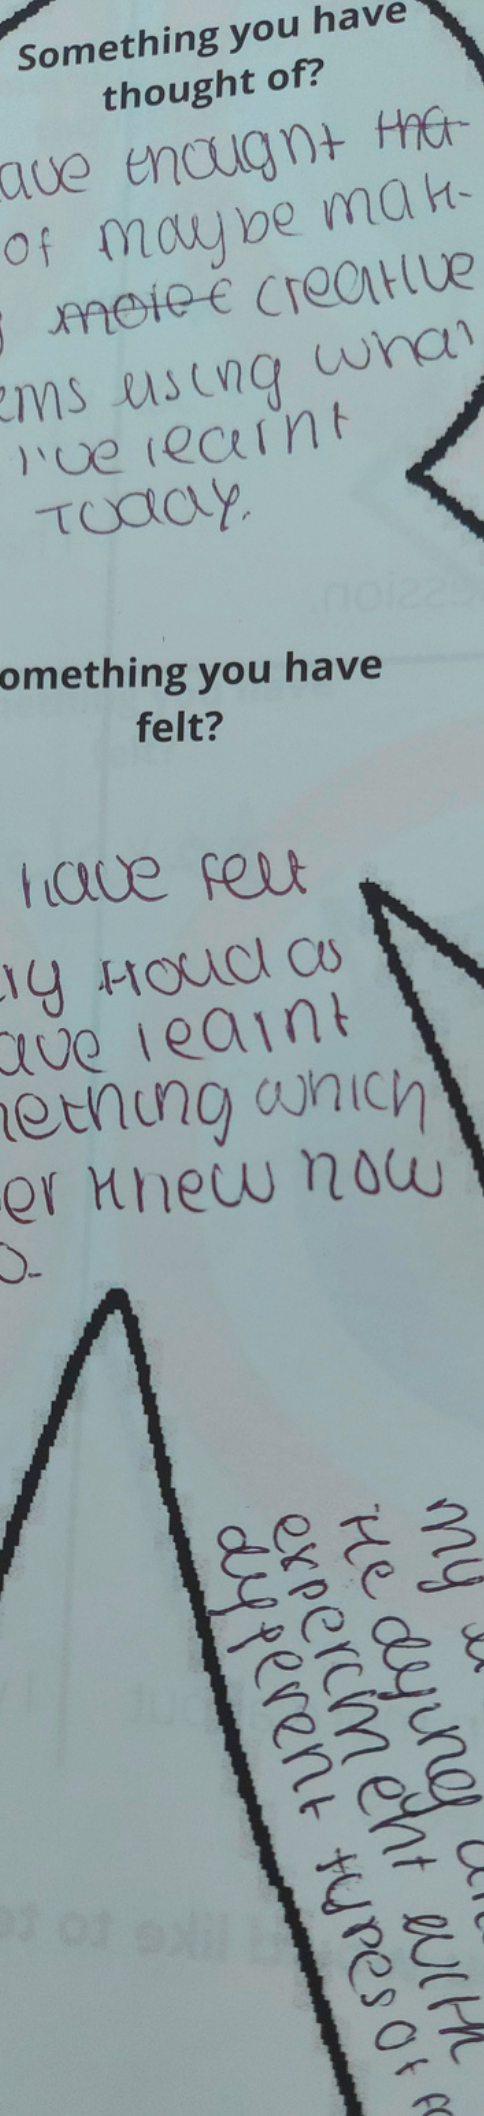 Something you have
thought of?
ave thought
of maybe mak-
creative
ems using what
I've learnt
Today.
omething you have
felt?
have felt
ly Proud as
ave learnt
mething which
er knew how
o.
My
tie dying
experiment with
different types of